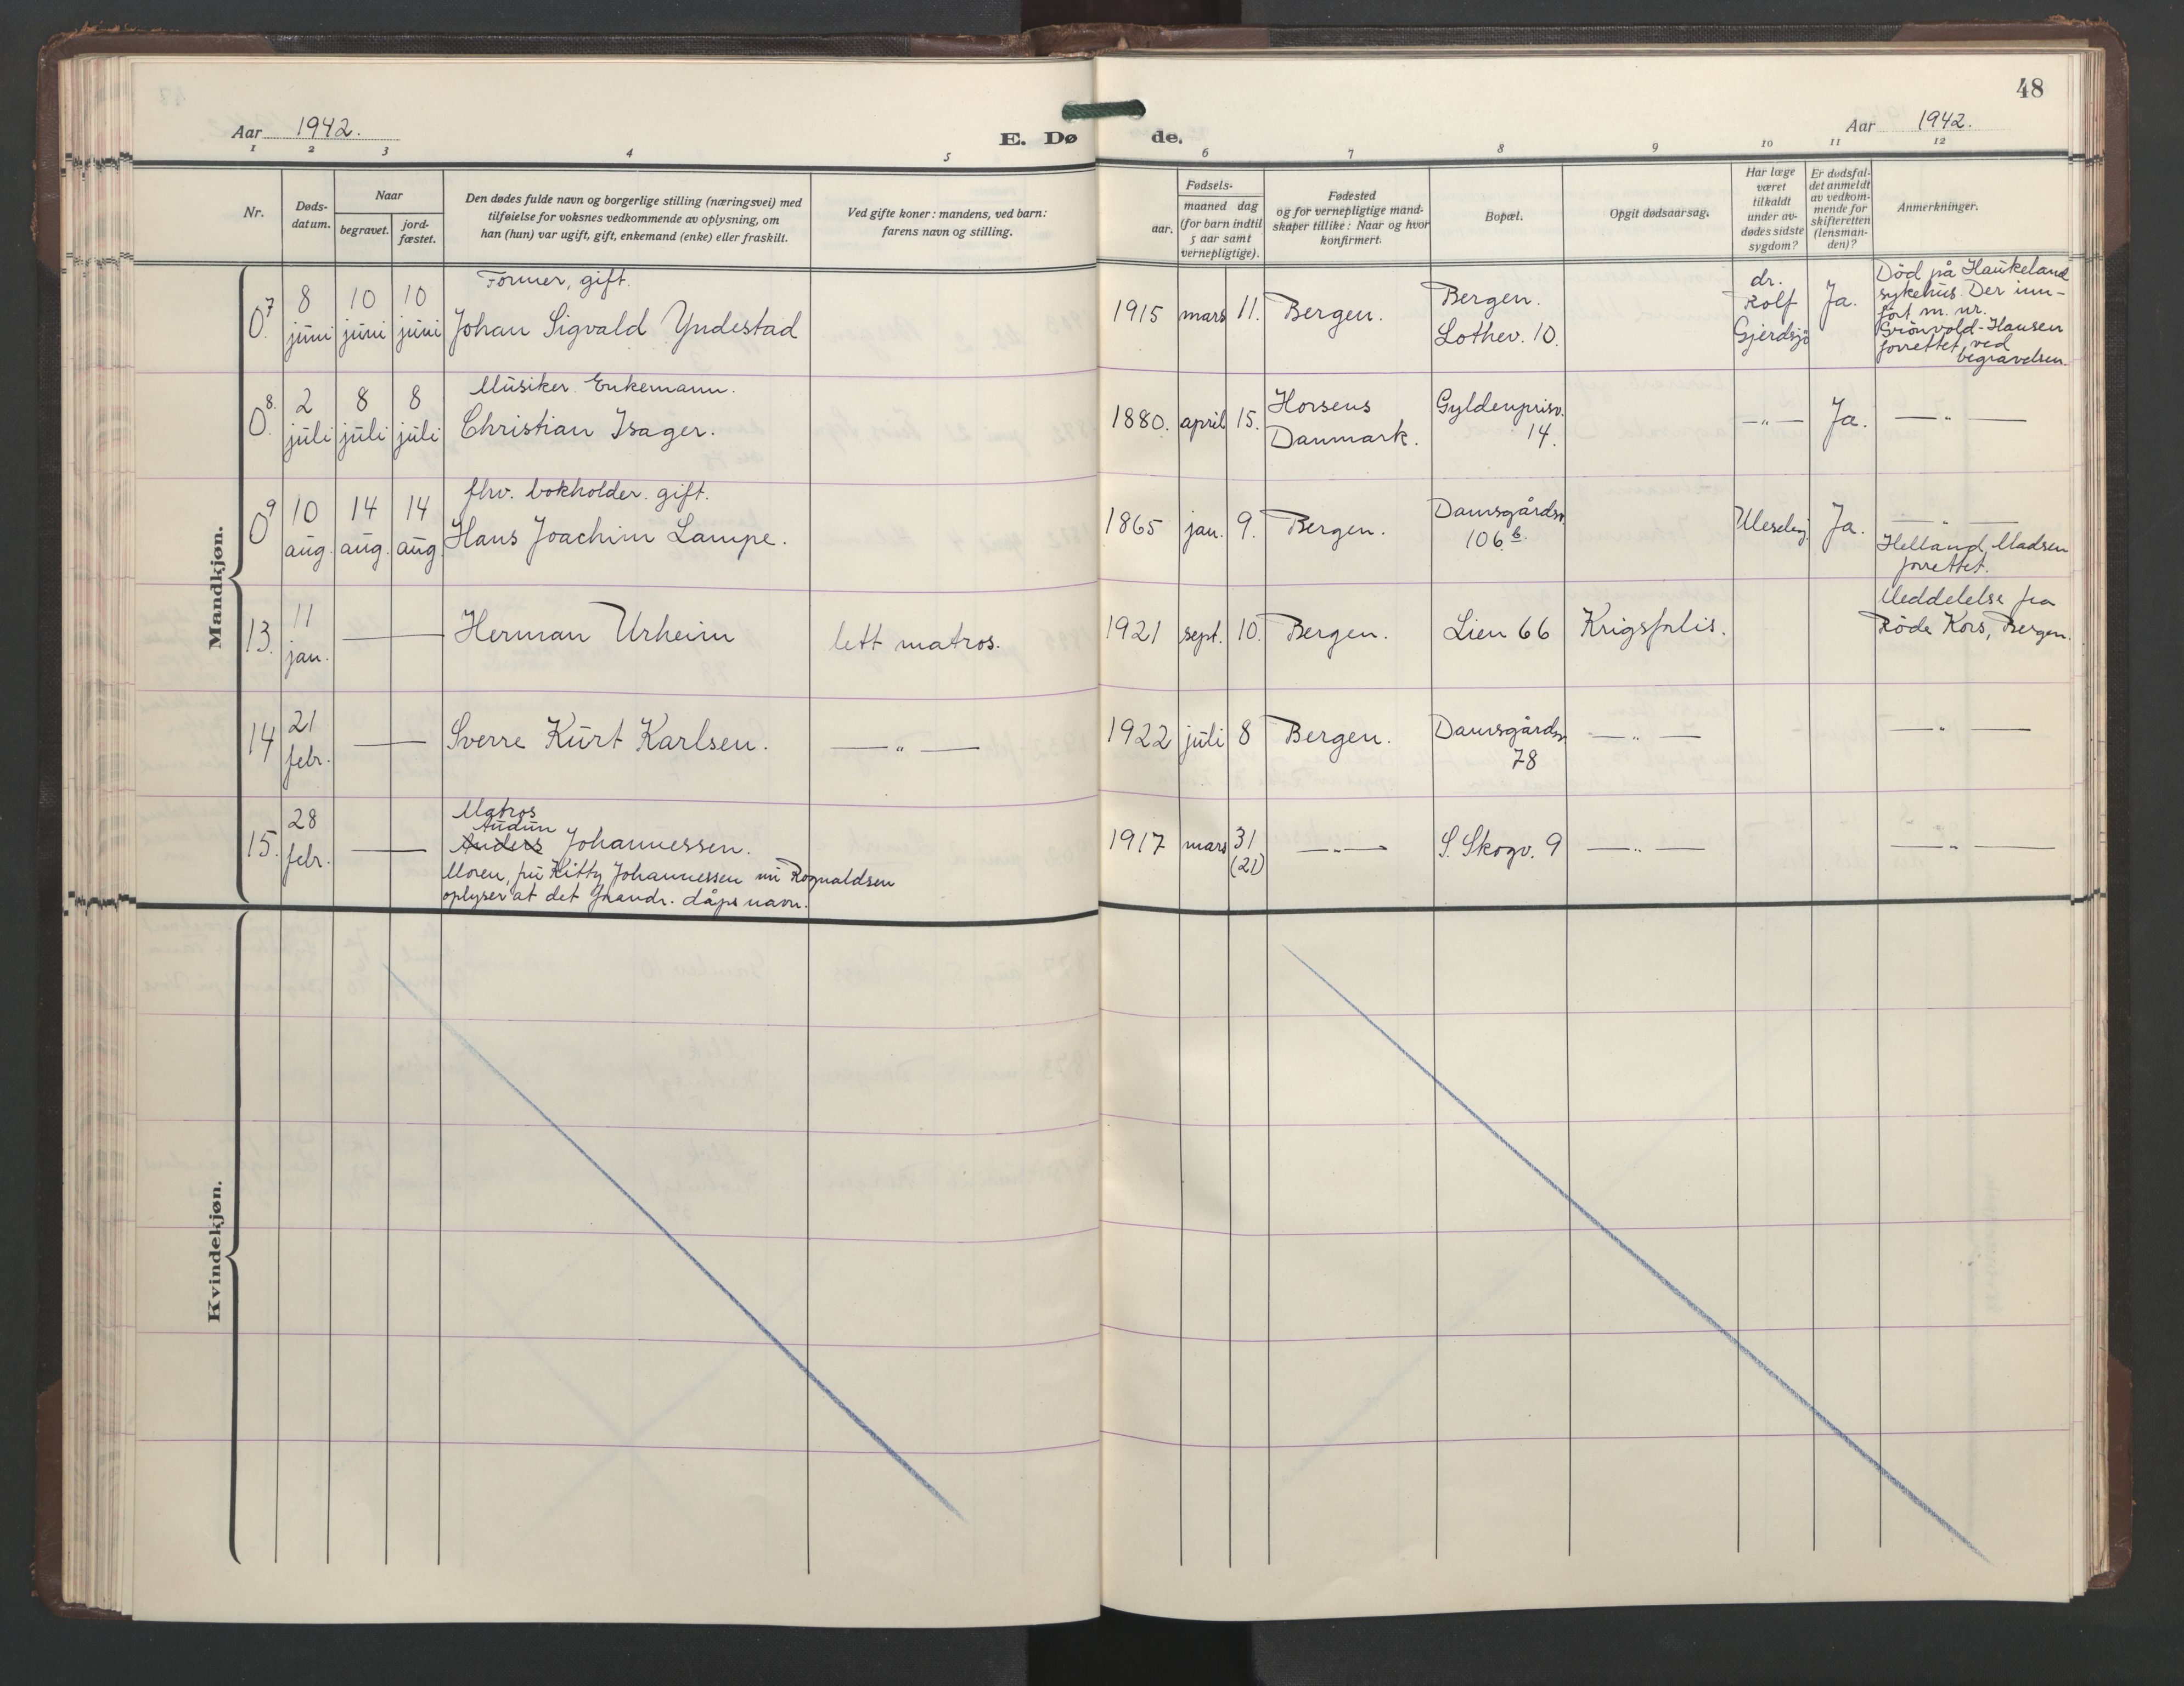 48
Aar 1942.
E. Dø
de.
Aar 1942.
1 2 3 4 5 6 7 8 9 10 11 12
Nr.
Døds-
datum.
Naar
begravet.
jord-
fæstet.
Den dødes fulde navn og borgerlige stilling (næringsvei) med
tilføielse for voksnes vedkommende av oplysning, om
han (hun) var ugift, gift, enkemand (enke) eller fraskilt.
Ved gifte koner: mandens, ved barn:
farens navn og stilling.
Fødsels-
aar.
maaned dag
(for barn indtil
5 aar samt
vernepligtige).
Fødested
og for vernepligtige mand-
skaper tillike: Naar og hvor
konfirmert.
Bopæl.
Opgit dødsaarsag.
Har læge
været
tilkaldt
under av-
dødes sidste
sygdom?
Er dødsfal-
det anmeldt
av vedkom-
mende for
skifteretten
(lensman-
den)?
Anmerkninger.
Mandkjøn.
07.
8
juni
10
juni
10
juni
Former, gift.
Johan Sigvald Yndestad
1915
mars
11.
Bergen.
Bergen.
Lothev. 10.
dr.
Rolf
Gjerdsjø
Ja.
Död på Haukeland
sykehus. Der inn-
fört m. nr.
Grönvold-Hansen
forrettet ved
begravelsen.
08.
2
juli
8
juli
8
juli
Musiker. Enkemann.
Christian Isager.
1880.
april
15.
Horsens
Danmark.
Gyldenprisv.
14.
— " —
Ja.
— " —
09
10
aug.
14
aug.
14
aug.
fhv. bokholder. gift.
Hans Joachim Lampe.
1865
jan.
9.
Bergen.
Damsgårdsv.
106 b.
Ja.
— " —
Helland, Madsen
forrettet.
13.
11
jan.
—
Herman Urheim
lett matros.
1921
sept.
10.
Bergen.
Lien 66
Krigsforlis.
Meddelelse fra
Röde Kors, Bergen.
14
21
febr.
—
Sverre Kurt Karlsen.
— " —
1922
juli
8
Bergen.
Damsgårdsv.
78
— " —
— " —
15.
28
febr.
—
Matros
Audun
Anders Johannessen.
Moren, fru Kitty Johannessen nu Rognaldsen
oplyser at det forandr. dåpsnavn.
1917
mars
31
(21)
— " —
S. Skogv. 9
— " —
— " —
Kvindekjøn.